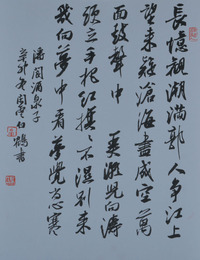 長憶觀潮滿郭人爭江上
望來疑滄海盡成空萬
面鼓聲中 弄潮兒向濤
頭立手把紅旗不濕別來
幾向夢中看夢覺尚心寒
潘閬酒泉子
白鶴書